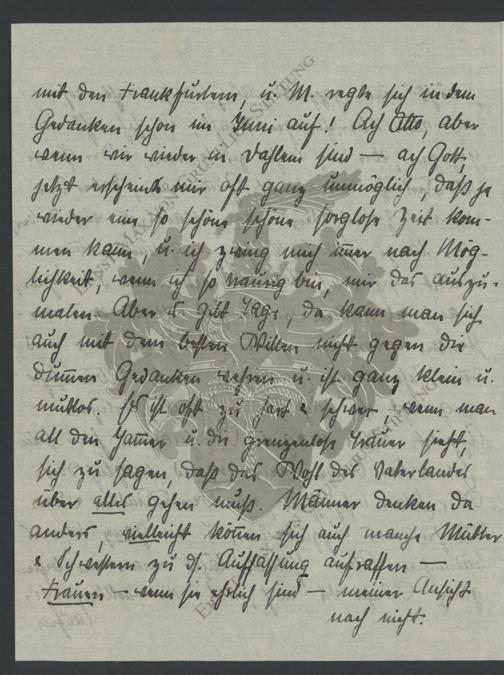 mit den Frankfurtern, u. M. regte sich in dem
Gedanken schon im Juni auf! Ach Otto, aber
wenn wir wieder in Dahlem sind — ach Gott,
jetzt erscheint's mir oft ganz unmöglich, daß je
wieder eine so schöne schöne sorglose Zeit kom-
men kann, u. ich zwing mich immer nach Mög-
lichkeit, wenn ich so traurig bin, mir das auszu-
malen. Aber es gibt Tage, da kann man sich
auch mit dem besten Willen nicht gegen die
dummen Gedanken wehren u. ist ganz klein u.
mutlos. Es ist oft zu hart & schwer, wenn man
all den Jammer u. die grenzenlose Trauer sieht,
sich zu sagen, daß das Wohl des Vaterlandes
über alles gehen muß. Männer denken da
anders, vielleicht können sich auch manche Mütter
& Schwestern zu ds. Auffassung aufraffen —
Frauen — wenn sie ehrlich sind — meiner Ansicht
nach nicht.